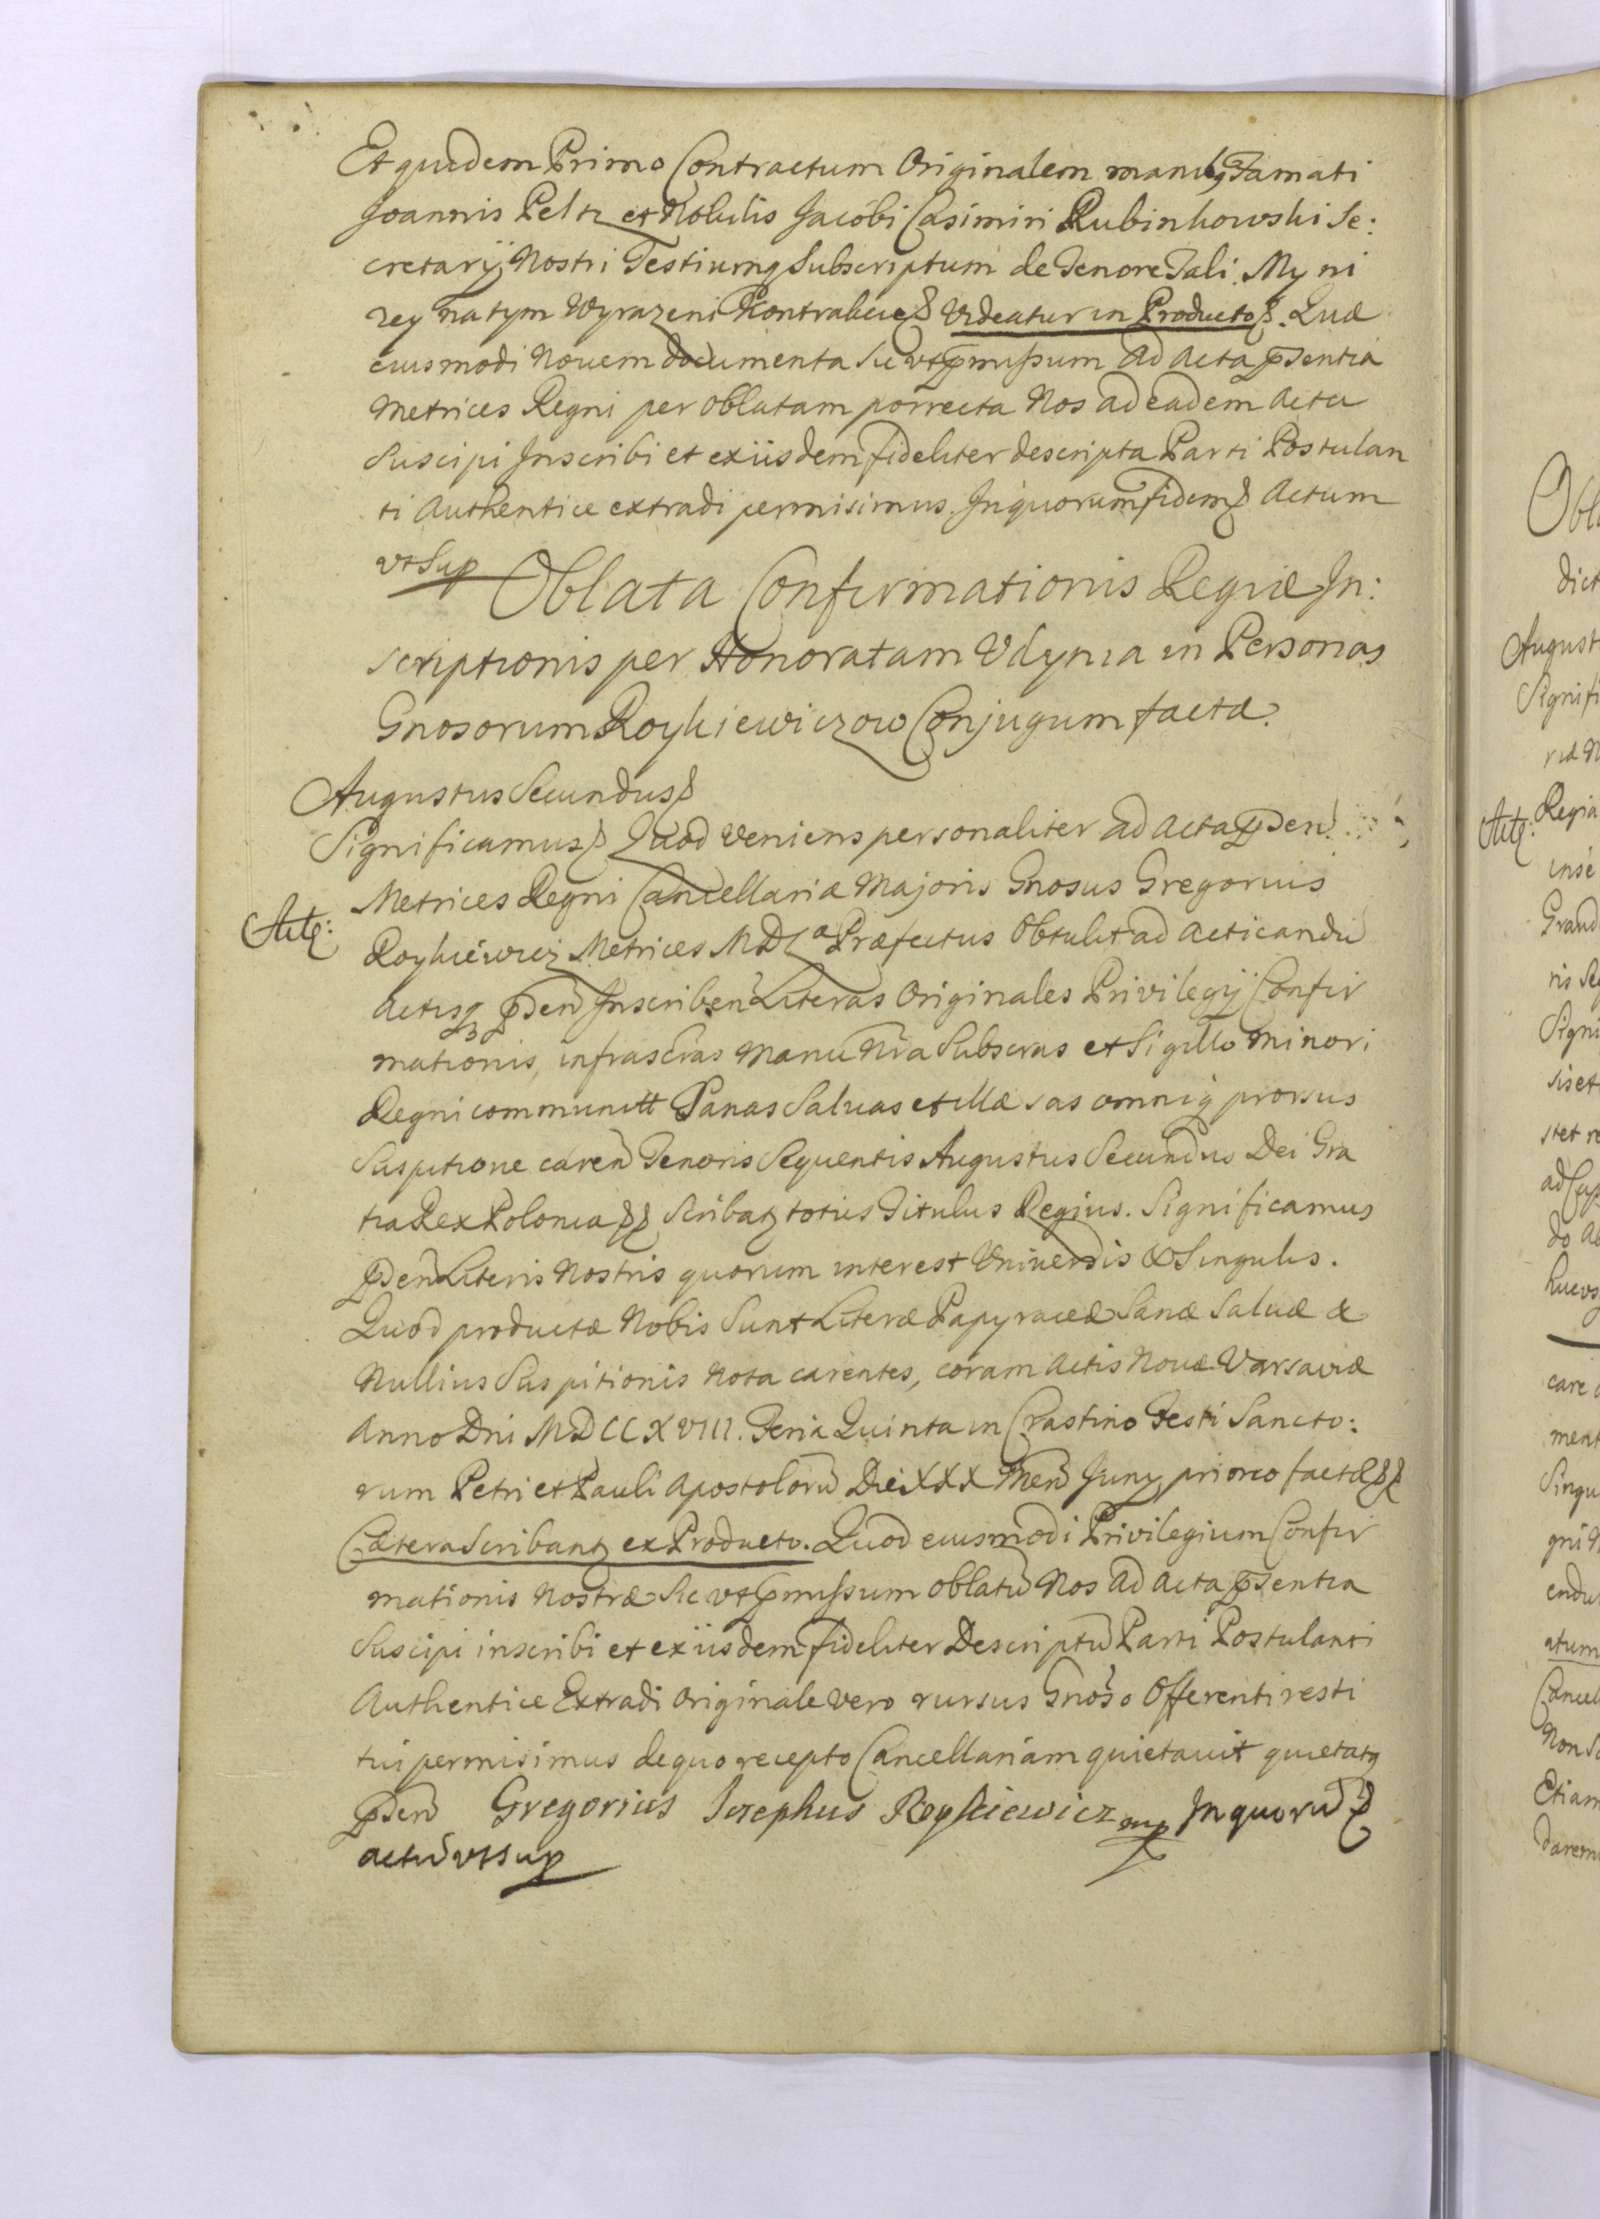 Et quidem Primo Contractum Originalem manibq Famati
Joannis Peltz et Nobilis Jacobi Casimiri Rubinkowski Se:
cretarij Nostri Testiumq Subscriptum de Tenore Tali. My ni
zey na tym Wyrazeni Kontrakcie Videatur in Producto. Quæ
eiusmodi Novem documenta sic vt pmissum ad Acta psentia
Metrices Regni per oblatam porrecta Nos ad eadem Acta
Suscipi Inscribi et ex iisdem fideliter descripta Parti Postulan
ti Authentice extradi permisimus. In quorum fidem Actum
vt Sup
Oblata Confirmationis Regiæ In:
scriptionis per Honoratam Udynia in Personas
Gnosorum Roykiewiczow Conjugum factæ.
Augustus Secundus
Significamus Quod Veniens personaliter ad Acta pden
Metrices Regni Cancellariæ Majoris Gnosus Gregorius
Actq:
Roykiewicz Metrices MDL Præfectus Obtulit ad Acticandu
Actisq pden Inscriben Literas Originales Privilegij Confir
mationis, infrascras Manu Nra Subscras et Sigillo Minori
Regni communitt Sanas Salvas et illæsas omniq prorsus
Suspitione caren Tenoris Sequentis Augustus Secundus Dei Gra
tia Rex Poloniæ Scribatz totus Titulus Regius. Significamus
pden Literis Nostris quorum interest Universis & Singulis.
Quod productæ Nobis Sunt Literæ Papyraceæ Sanæ Salvæ &
Nullius Suspitionis Nota carentes, coram Actis Novæ Varsaviæ
Anno Dni MDCCXVIII. Feria Quinta in Crastino Festi Sancto:
rum Petri et Pauli Apostoloru Die XXX Men Juny, priorco factæ
Cætera Scribantz ex Producto. Quod eiusmodi Privilegium Confir
mationis Nostræ Sic vt pmissum oblatu Nos ad Acta psentia
Suscipi inscribi et ex iisdem fideliter Descriptu Parti Postulanti
Authentice Extradi Originale vero rursus Gnoso Offerenti resti
tui permisimus de quo recepto Cancellariam quietavit quietatq
pden Gregorius Josephus Roykiewicz mp In quoru
actu vt sup